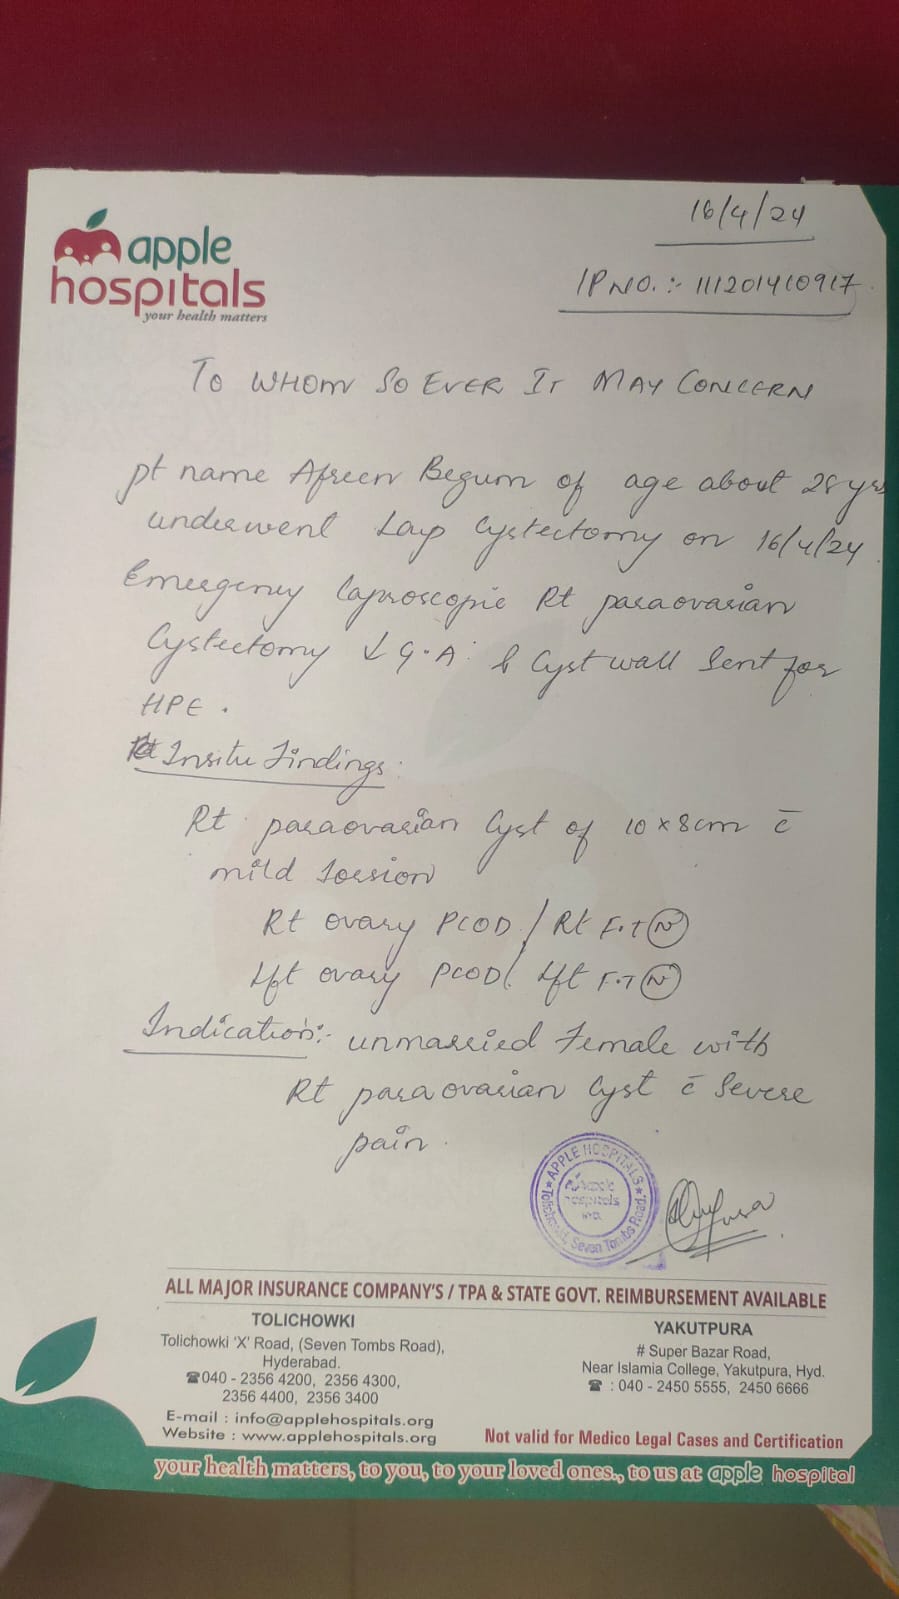 16/4/24
apple
hospitals
your health matters
IP NO. :- 111201410917
TO WHOM SO EVER IT MAY CONCERN
pt name Afreen Begum of age about 28 yrs
underwent Lap Cystectomy on 16/4/24.
Emergency laproscopic Rt paraovarian
Cystectomy ↓ G.A. & Cyst wall Sent for
HPE.
Insitu Findings:
Rt paraovarian Cyst of 10 x 8cm c̄
mild torsion
Rt ovary PCOD / Rt F.T (N)
Lft ovary PCOD / Lft F.T (N)
Indication:- unmarried Female with
Rt paraovarian Cyst c̄ Severe
pain.
★ APPLE HOSPITALS ★
Tolichowki, Seven Tombs Road,
apple
hospitals
ALL MAJOR INSURANCE COMPANY'S / TPA & STATE GOVT. REIMBURSEMENT AVAILABLE
TOLICHOWKI
Tolichowki 'X' Road, (Seven Tombs Road),
Hyderabad.
☎040 - 2356 4200, 2356 4300,
2356 4400, 2356 3400
E-mail : info@applehospitals.org
Website : www.applehospitals.org
YAKUTPURA
# Super Bazar Road,
Near Islamia College, Yakutpura, Hyd.
☎ : 040 - 2450 5555, 2450 6666
Not valid for Medico Legal Cases and Certification
your health matters, to you, to your loved ones., to us at apple hospital